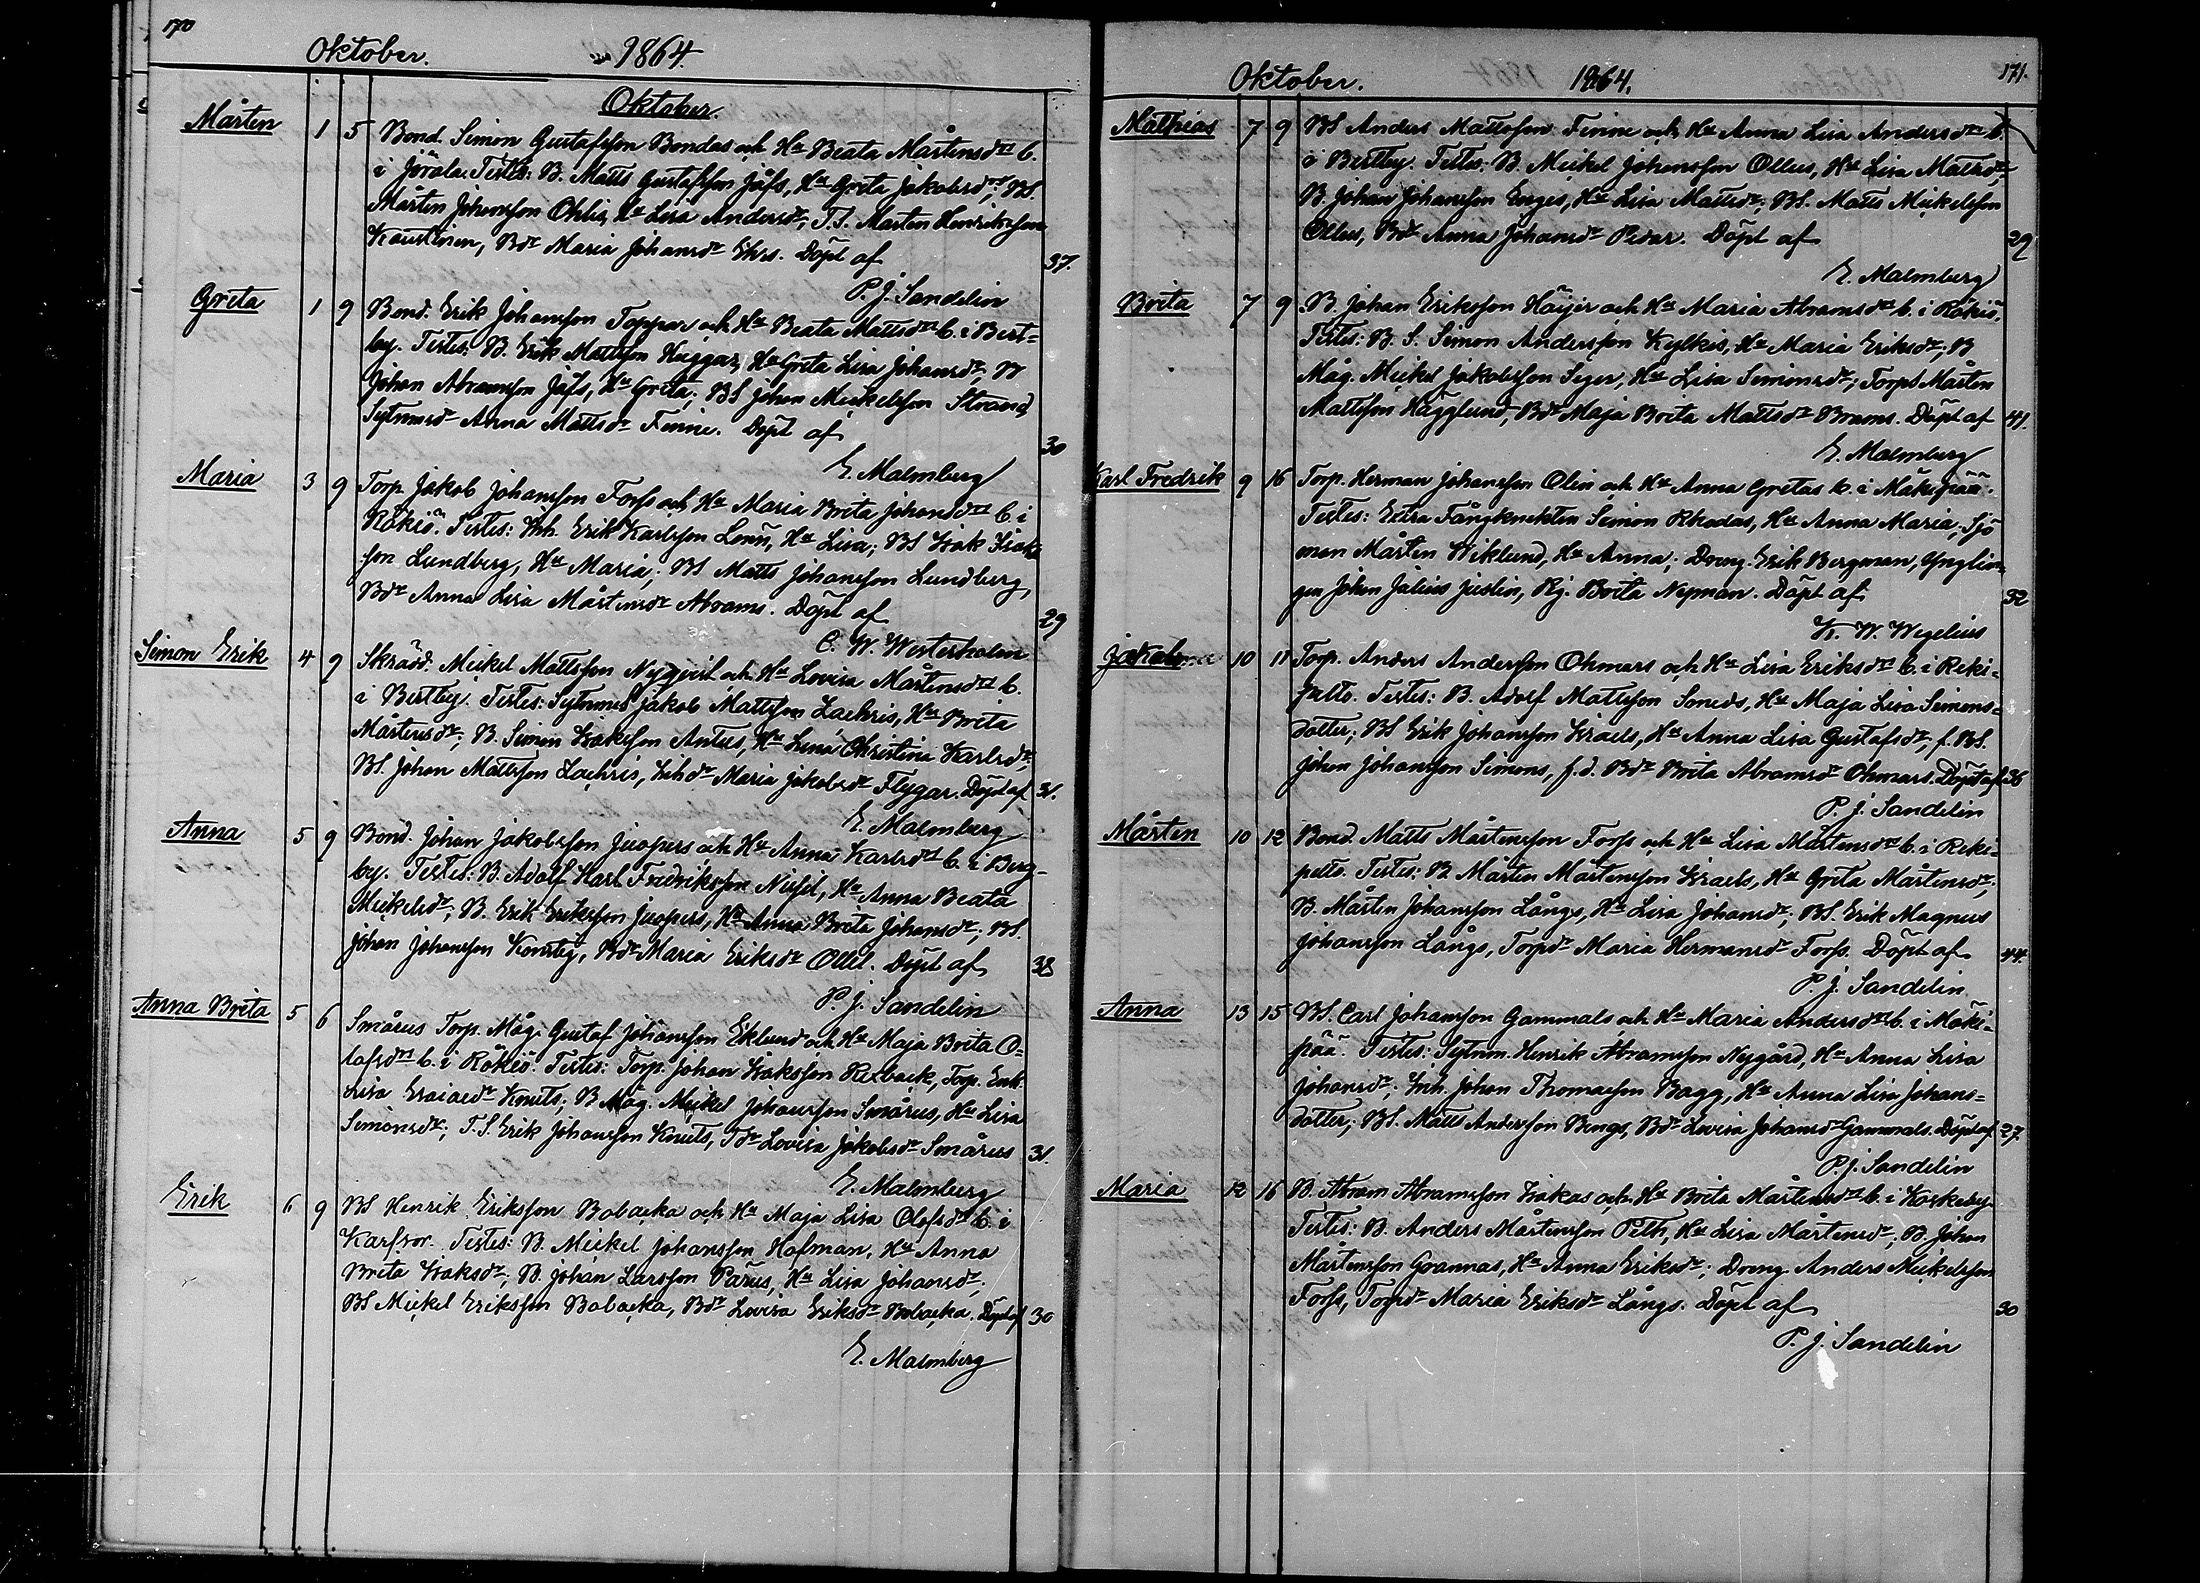 170
Oktober. 1864.
Oktober.
Mårten 1 5 Bond. Simon Gustafsson Bondas och Hu Beata Mårtensdr b.
i Jöråla. Testes: B. Matts Gustafsson Jåfs, Hu Greta Jakobsdr; BS.
Mårten Johansson Ohlis, Hu Lisa Andersdr; T.S. Mårten Henriksson
Kaustinen, Bdr Maria Johansdr Ehrs. Döpt af 37.
P. J. Sandelin
Greta 1 9 Bond. Erik Johansson Toppar och Hu Beata Mattsdr b. i Bert=
by. Testes: B. Erik Mattsson Knuggar, Hu Greta Lisa Johansdr; B
Johan Abramsson Jåfs, Hu Greta; BS Johan Mickelsson Strand
Sytnmsdr Anna Mattsdr Finne. Döpt af 30
E. Malmberg
Maria 3 9 Torp. Jakob Johansson Forss och Hu Maria Brita Johansdr b. i
Rökiö. Testes: Inh. Erik Karlsson Lönn, Hu Lisa; BS Isak Isaks
son Lundberg, Hu Maria; BS Matts Johansson Lundberg,
Bdr Anna Lisa Mårtensdr Abrams. Döpt af 29
C. W. Westerholm
Simon Erik 4 9 Skrädd. Mickel Mattsson Nyqvist och Hu Lovisa Mårtensdr b.
i Bertby. Testes: Sytnms Jakob Mattsson Laehris, Hu Brita
Mårtensdr; B. Simon Isaksson Antus, Hu Lena Christina Karlsdr;
BS. Johan Mattsson Laehris, Inhdr Maria Jakobsdr Flygar. Döpt af 31.
E. Malmberg
Anna 5 9 Bond. Johan Jakobsson Juopers och Hu Anna Karlsdr b. i Berg-
by. Testes: B. Adolf Karl Fredriksson Nissil, Hu Anna Beata
Mickelsdr; B. Erik Eriksson Juopers, Hu Anna Brita Johansdr; BS.
Johan Johansson Kornby, Bdr Maria Eriksdr Ollil. Döpt af 38
P. J. Sandelin
Anna Brita 5 6 Smårus Torp. Måg. Gustaf Johansson Eklund och Hu Maja Brita O=
lofsdr b. i Rökiö. Testes: Torp. Johan Isaksson Rexback, Torp. Enk.
Lisa Esaiaedr Knuts; B Måg. Mickel Johansson Smårus, Hu Lisa
Simonsdr; T.S. Erik Johansson Knuts, Tdr Lovisa Jakobsdr Smårus 31.
E. Malmberg
Erik 6 9 BS Henrik Eriksson Bobacka och Hu Maja Lisa Olofsdr b. i
Karfsor. Testes: B. Mickel Johansson Hofman, Hu Anna
Brita Isaksdr; B. Johan Larsson Parus, Hu Lisa Johansdr;
BS Mickel Eriksson Bobacka, Bdr Lovisa Eriksdr Bobacka. Döpt af 30
E. Malmberg
171.
Oktober. 1864.
Mathias 7 9 BS Anders Mattsson Finne och Hu Anna Lisa Andersdr b.
i Bertby. Testes: B. Mickel Johansson Ollus, Hu Lisa Matsdr;
B. Johan Johansson Enges, Hu Lisa Mattsdr; BS. Matts Mickelsson
Ollus, Bdr Anna Johansdr Pedar. Döpt af 29
E. Malmberg
Brita 7 9 B. Johan Eriksson Häyer och Hu Maria Abramsdr b. i Rökiö.
Testes: B. S. Simon Andersson Kylkis, Hu Maria Eriksdr; B
Måg. Mickel Jakobsson Seger, Hu Lisa Simonsdr; Torps Mårten
Mattsson Hägglund, Bdr Maja Brita Mattsdr Brams. Döpt af 41.
E. Malmberg
Karl Fredrik 9 16 Torp. Herman Johansson Olin och Hu Anna Gretas b. i Mäkipää.
Testes: Extra Fångknekten Simon Rhodas, Hu Anna Maria; Sjö
man Mårten Wiklund, Hu Anna; Dreng. Erik Bergman, Ynglin,
gen Johan Julius Juslin, Pig. Brita Nyman. Döpt af 32
K. W. Wegelius
Jakob 10 11 Torp. Anders Andersson Ohmars och Hu Lisa Eriksdr b. i Reki=
pelto. Testes: B. Adolf Mattsson Smeds, Hu Maja Lisa Simons=
dotter; BS Erik Johansson Israels, Hu Anna Lisa Gustafsdr; f. BS.
Johan Johansson Simons, f.d. Bdr Brita Abramsdr Ohmars. Döpt af 26
P. J. Sandelin
Mårten 10 12 Bond. Matts Mårtensson Forss och Hu Lisa Mårtensdr b. i Reki=
pelto. Testes: B Mårten Mårtensson Israels, Hu Greta Mårtensdr;
B. Mårten Johansson Långs, Hu Lisa Johansdr; BS. Erik Magnus
Johansson Långs, Torpdr Maria Hermansdr Forss. Döpt af 44.
P. J. Sandelin
Anna 13 15 BS. Carl Johansson Gammals och Hu Maria Andersdr b. i Mäki=
pää. Testes: Sytnm. Henrik Abramsson Nygård, Hu Anna Lisa
Johansdr; Inh. Johan Thomasson Bagg, Hu Anna Lisa Johans=
dotter; BS. Matts Andersson Bengs, Bdr Lovisa Johansdr Gammals. Döpt af 27.
P. J. Sandelin
Maria 12 16 B. Abram Abramsson Isakas och Hu Brita Mårtensdr b. i Koskeby.
Testes: B. Anders Mårtensson Peth, Hu Lisa Mårtensdr; B. Johan
Mårtensson Goannas, Hu Anna Eriksdr; Dreng. Anders Mickelsson
Forss, Torpdr Maria Eriksdr Långs. Döpt af 30
P. J. Sandelin